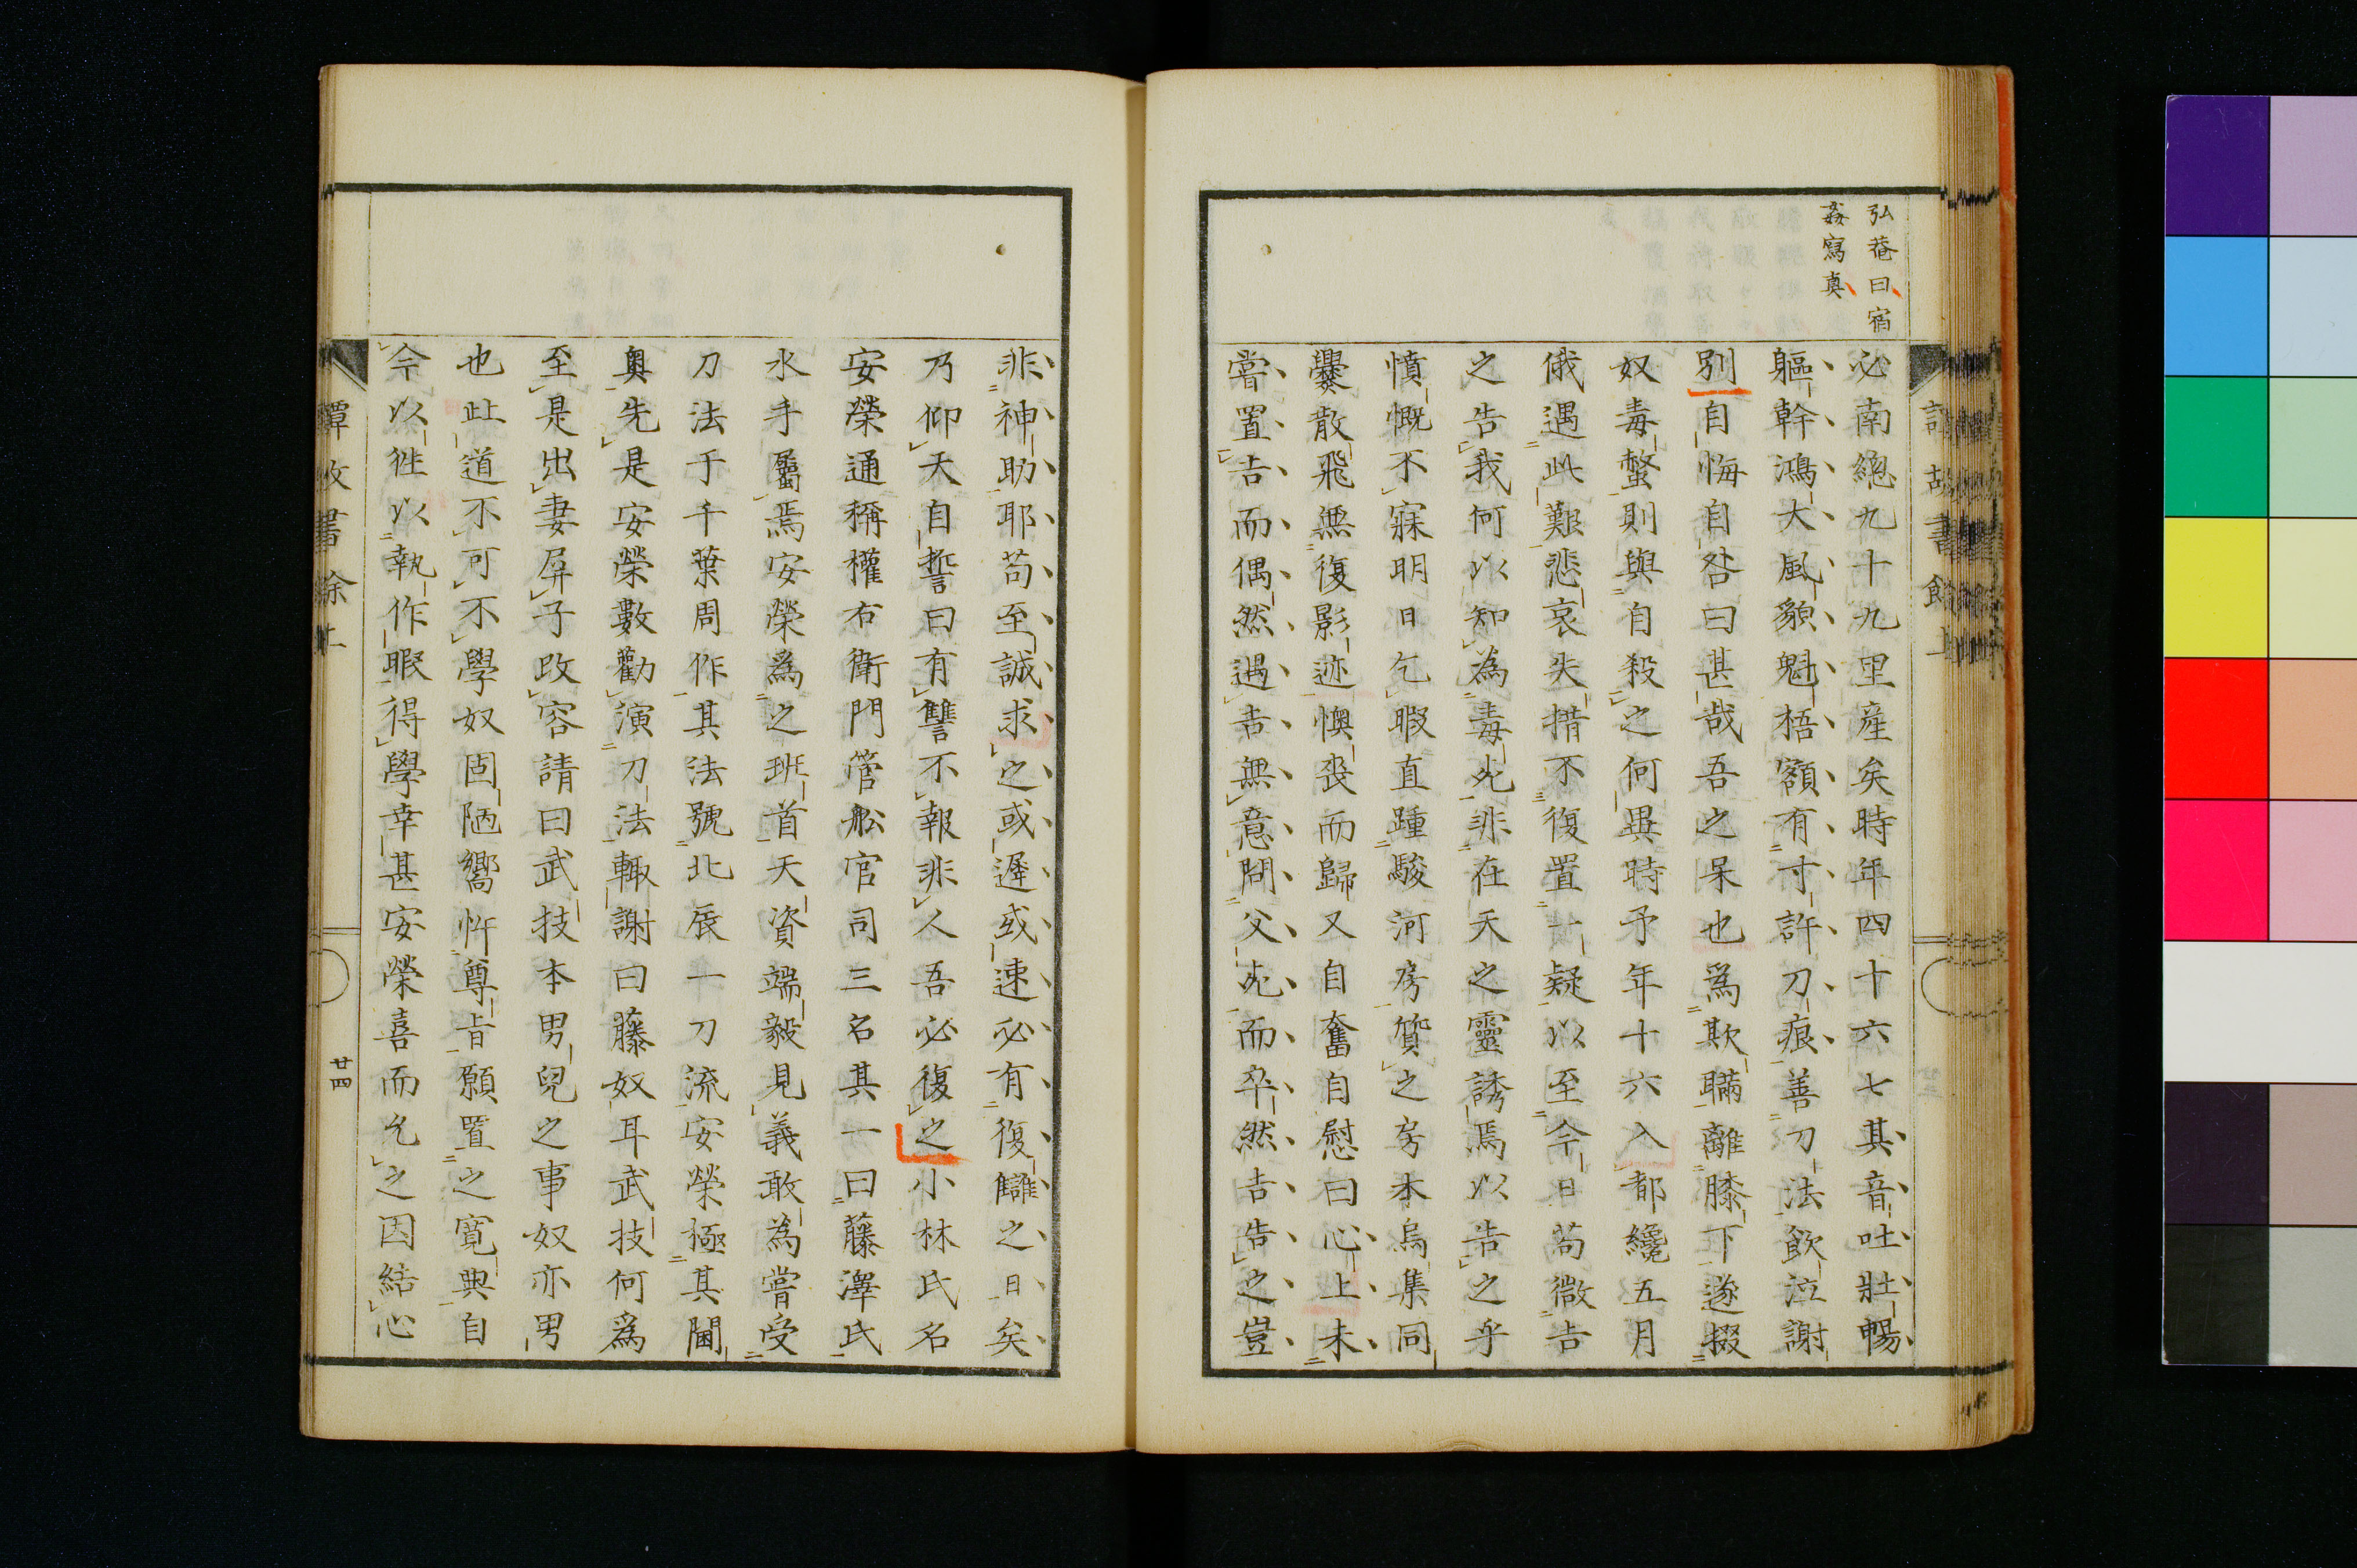 弘菴曰宿
姦寫真
必南總九十九里産矣時年四十六七其音吐壯暢
軀幹鴻大風貌魁梧額有寸許刀痕善刀法飲泣謝
別自悔自咎曰甚哉吾之呆也為欺瞞離膝下遂掇
奴毒螫則與自殺之何異時予年十六入都纔五月
俄遇此艱悲哀失措不復置一疑以至今日苟微吉
之告我何以知為毒死非在天之靈誘焉以告之乎
憤慨不寐明日乞暇直踵駿河房質之房木烏集同
爨散飛無復影迹懊喪而歸又自奮自慰曰心上未
嘗置吉而偶然遇吉無意問父死而卒然吉告之豈
非神助耶苟至誠求之或遲或速必有復讎之日矣
乃仰天自誓曰有讐不報非人吾必復之小林氏名
安榮通稱權右衛門管舩官司三名其一曰藤澤氏
水手屬焉安榮為之班首天資端毅見義敢為嘗受
刀法于千葉周作其法號北辰一刀流安榮極其閫
奥先是安榮數勸演刀法輙謝曰藤奴耳武技何為
至是出妻屏子改容請曰武技本男兒之事奴亦男
也此道不可不學奴固陋嚮忤尊旨願置之寛典自
今以徃以執作暇得學幸甚安榮喜而允之因結心
譚故書餘上
廿四